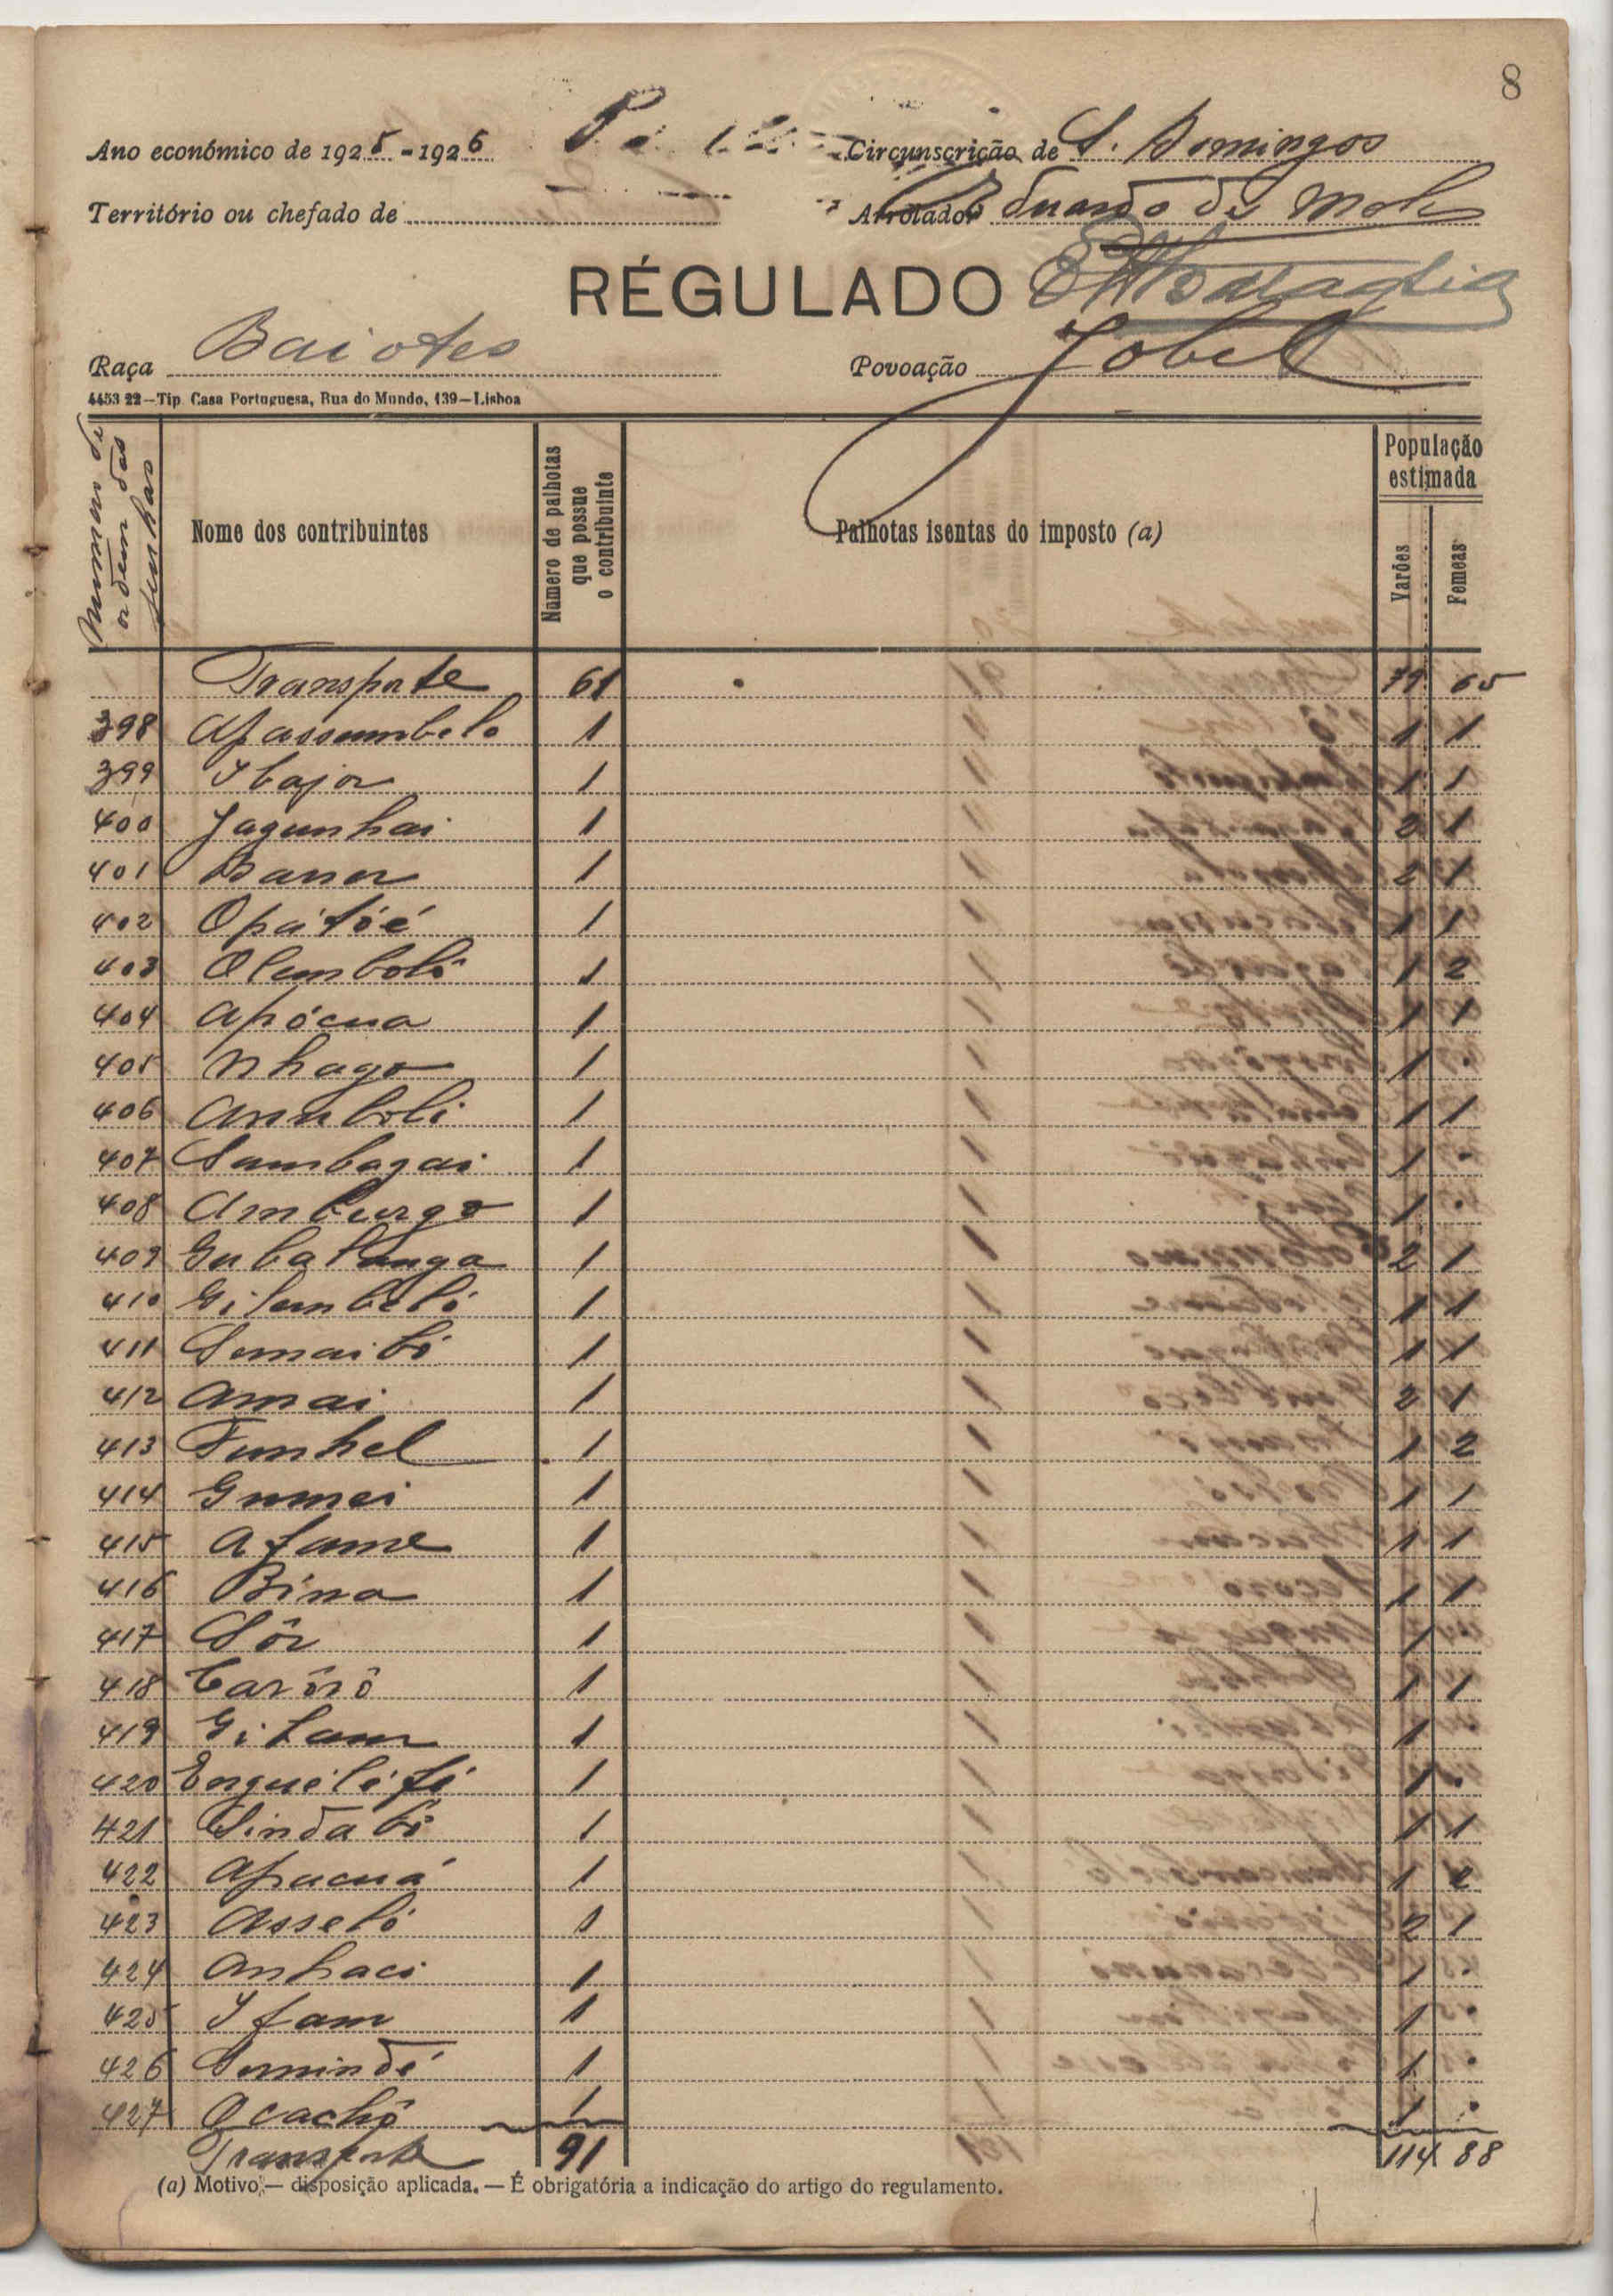 8
Ano económico de 1925-1926 Circunscrição de S. Domingos
Território ou chefado de Arrolador Eduardo de
RÉGULADO
Raça Baiotes Povoação Jobel
4453 22—Tip. Casa Portuguesa, Rua do Mundo, 139—Lisboa
Numero de ordem das senhas
Nome dos contribuintes
Número de palhotas que possue o contribuinte
Palhotas isentas do imposto (a)
População estimada
Varões Femeas
Transporte 61 79 65
398 Apassumbelo 1 1 1
399 Ibajor 1 1 1
400 Jagunhai 1 2 1
401 Baner 1 2 1
402 Opátóé 1 1 1
403 Olimboló 1 1 2
404 Apócua 1 1 1
405 Nhago 1 1 .
406 Anuboli 1 1 1
407 Sambagai 1 1 .
408 Amburgo 1 1 .
409 Gubatanga 1 2 1
410 Gilumbeló 1 1 1
411 Semaibó 1 1 1
412 Amai 1 2 1
413 Funhel 1 1 2
414 Gumei 1 1 1
415 Afame 1 1 1
416 Bina 1 1 1
417 Sôr 1 1 .
418 Carôrô 1 1 1
419 Gitam 1 1 .
420 Enguéléfé 1 1 .
421 Sindabó 1 1 1
422 Apacuá 1 1 2
423 Asseló 1 2 1
424 Anhaci 1 1 .
425 Ifam 1 1 .
426 Semindé 1 1 .
427 Ocachô 1 1 .
Transporte 91 114 88
(a) Motivo;— disposição aplicada.— É obrigatória a indicação do artigo do regulamento.